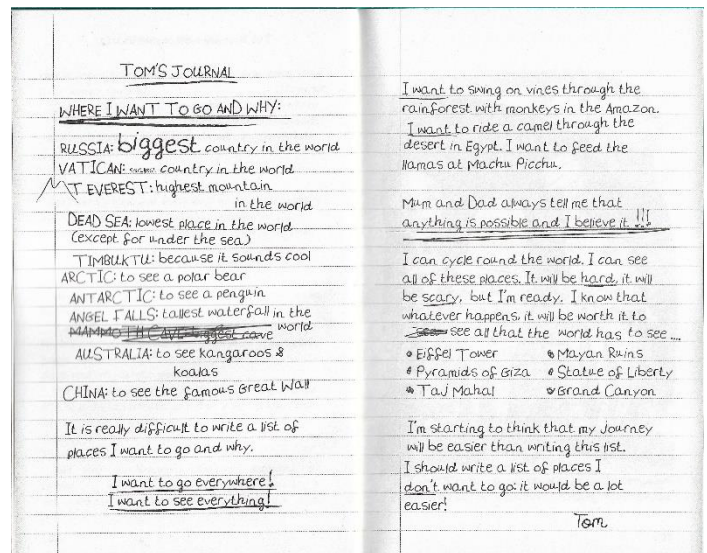 TOM'S JOURNAL
WHERE I WANT TO GO AND WHY:
RUSSIA: biggest country in the world
VATICAN: country in the world
MT EVEREST: highest mountain
in the world
DEAD SEA: lowest place in the world
(except for under the sea)
TIMBUKTU: because it sounds cool
ARCTIC: to see a polar bear
ANTARCTIC: to see a penguin
ANGEL FALLS: tallest waterfall in the
world
MAMMOTH CAVE: biggest cave
AUSTRALIA: to see kangaroos &
koalas
CHINA: to see the famous Great Wall
It is really difficult to write a list of
places I want to go and why.
I want to go everywhere!
I want to see everything!
I want to swing on vines through the
rainforest with monkeys in the Amazon.
I want to ride a camel through the
desert in Egypt. I want to feed the
llamas at Machu Picchu.
Mum and Dad always tell me that
anything is possible and I believe it!!!
I can cycle round the world. I can see
all of these places. It will be hard, it will
be scary, but I'm ready. I know that
whatever happens, it will be worth it to
see all that the world has to see....
• Eiffel Tower • Mayan Ruins
• Pyramids of Giza • Statue of Liberty
• Taj Mahal • Grand Canyon
I'm starting to think that my journey
will be easier than writing this list.
I should write a list of places I
don't want to go: it would be a lot
easier!
Tom